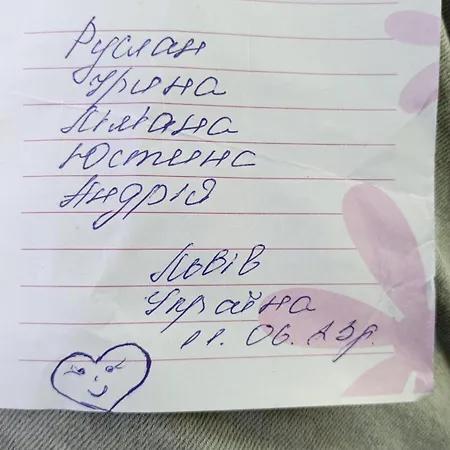 Руслан
Ірина
Ліліана
Юстина
Андрій
Львів
Україна
11.06.23р.